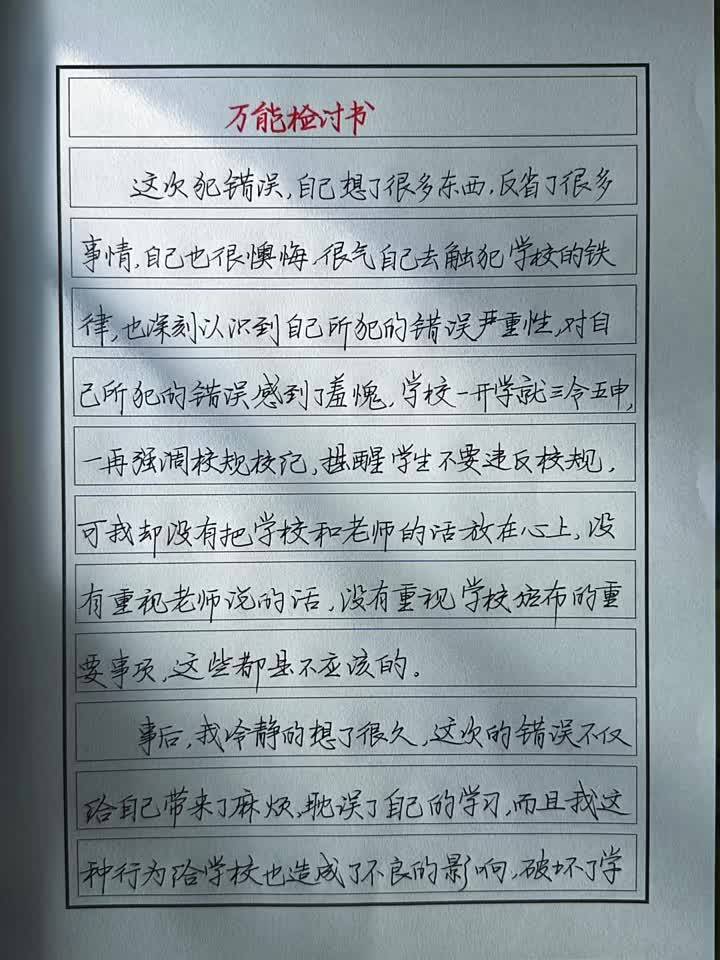 万能检讨书
这次犯错误,自己想了很多东西,反省了很多
事情,自己也很懊悔,很气自己去触犯学校的铁
律,也深刻认识到自己所犯的错误严重性,对自
己所犯的错误感到了羞愧。学校一开学就三令五申,
一再强调校规校记,提醒学生不要违反校规,
可我却没有把学校和老师的话放在心上,没
有重视老师说的话,没有重视学校颁布的重
要事项,这些都是不应该的。
事后,我冷静的想了很久,这次的错误不仅
给自己带来了麻烦,耽误了自己的学习,而且我这
种行为给学校也造成了不良的影响,破坏了学